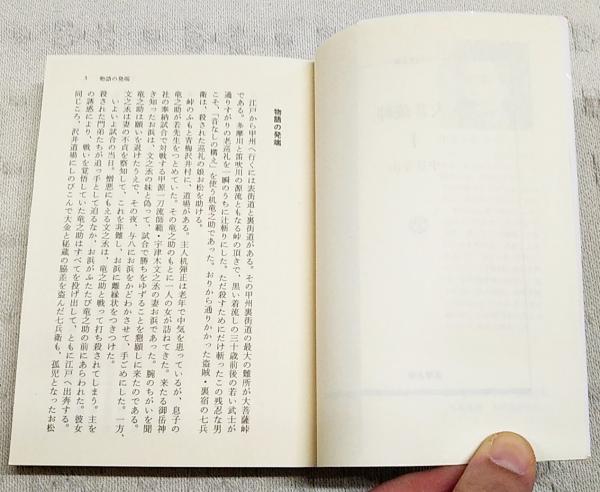 3 物語の発端
物語の発端
江戸から甲州へ行くには表街道と裏街道がある。その甲州裏街道の最大の難所が大菩薩峠
である。多摩川と笛吹川の源流ともなる峠の頂きで、黒い着流しの三十歳前後の若い武士が
通りすがりの老巡礼を一瞬のうちに辻斬りにした。ただ殺すためにだけ斬ったこの残忍な男
こそ、「音なしの構え」を使う机竜之助であった。おりから通りかかった盗賊・裏宿の七兵
衛は、殺された巡礼の娘お松を助ける。
峠のふもと青梅沢井村に、道場がある。主人机弾正は老年で中気を患っているが、息子の
竜之助が若先生をつとめていた。その竜之助のもとに一人の女が訪ねてきた。来たる御岳神
社の奉納試合で対戦する甲源一刀流師範・宇津木文之丞の妻お浜であった。腕のちがいを聞
き知ったお浜は、文之丞の妹と偽って、試合で勝ちをゆずることを懇願しに来たのである。
竜之助は願いを退けたうえで、その夜、与八にお浜をかどわかさせて、手ごめにした。一方、
文之丞は妻の不貞を察知して、これを非難し、お浜に離縁状をつきつけた。
いよいよ試合の当日、憎悪にもえる文之丞は、竜之助と戦って打ち殺されてしまう。主を
殺された門弟たちが追っ手として迫るなか、お浜がふたたび竜之助の前にあらわれた。彼女
の誘惑により、戦いを覚悟していた竜之助はすべてを投げ出して、ともに江戸へ出奔する。
同じころ、沢井道場にしのびこんで大金と秘蔵の脇差を盗んだ七兵衛も、孤児となったお松